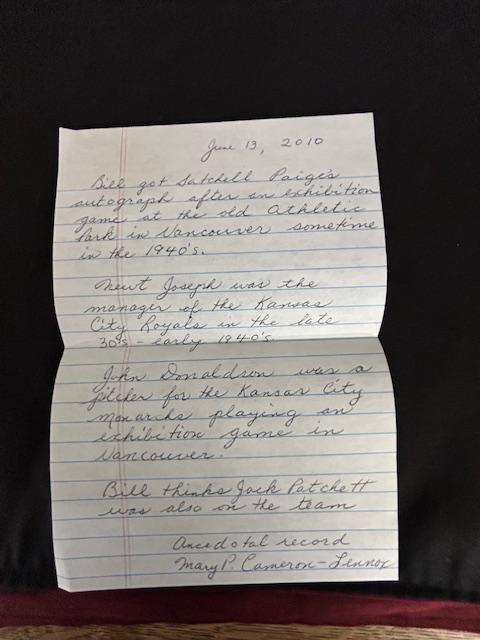 June 13, 2010
Bill got Satchell Paige's
autograph after an exhibition
game at the old Athletic
Park in Vancouver sometime
in the 1940's.
Newt Joseph was the
manager of the Kansas
City Royals in the late
30's - early 1940's.
John Donaldson was a
pitcher for the Kansas City
Monarchs playing an
exhibition game in
Vancouver.
Bill thinks Jack Patchett
was also on the team
Anecdotal record
Mary P. Cameron-Lennox